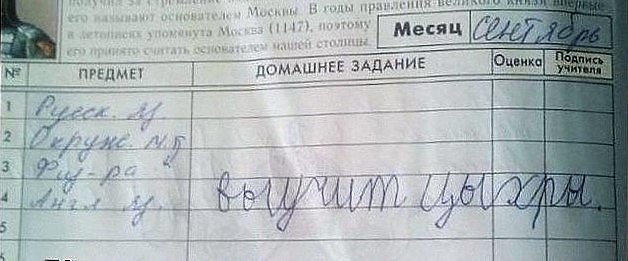 получил за стремление
его называют основателем Москвы. В годы правления великого князя впервые
в летописях упомянута Москва (1147), поэтому
его принято считать основателем нашей столицы.
Месяц Сентябрь
№ ПРЕДМЕТ ДОМАШНЕЕ ЗАДАНИЕ Оценка Подпись учителя
1 Русск. яз
2 Окруж. м.
3 Физ-ра
4 Англ яз. выучит цыхры.
5